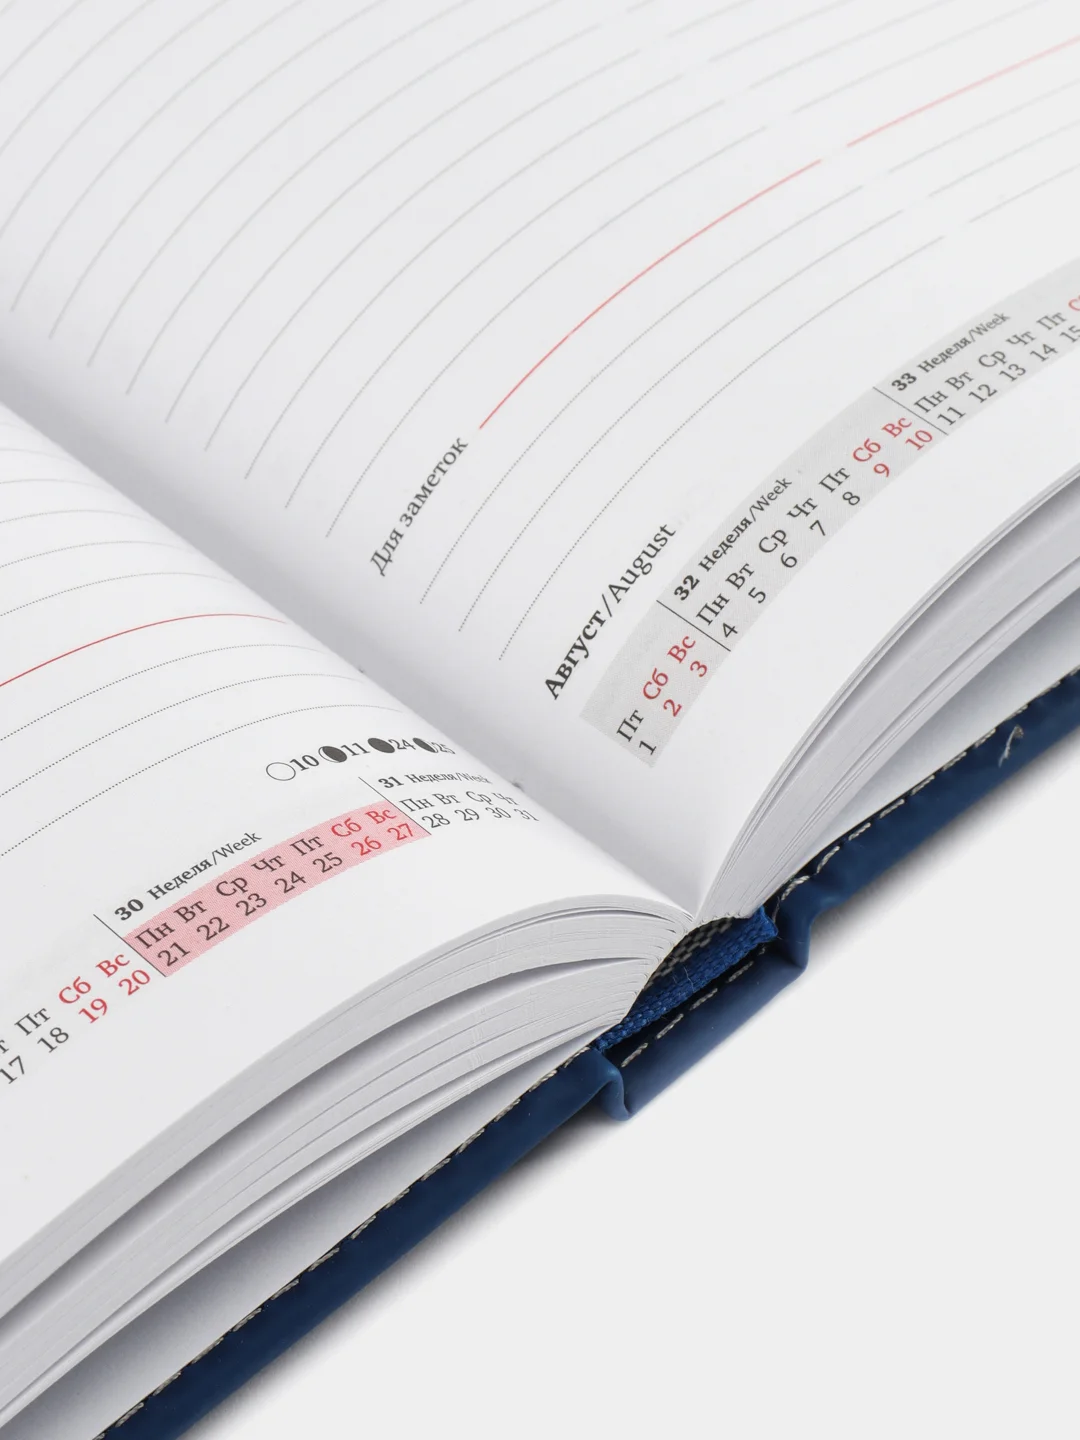 10 11 24 25
30 Неделя/Week 31 Неделя/Week
Пт Сб Вс Пн Вт Ср Чт Пт Сб Вс Пн Вт Ср Чт
17 18 19 20 21 22 23 24 25 26 27 28 29 30 31
Для заметок
Август/August
32 Неделя/Week 33 Неделя/Week
Пт Сб Вс Пн Вт Ср Чт Пт Сб Вс Пн Вт Ср Чт Пт
1 2 3 4 5 6 7 8 9 10 11 12 13 14 15